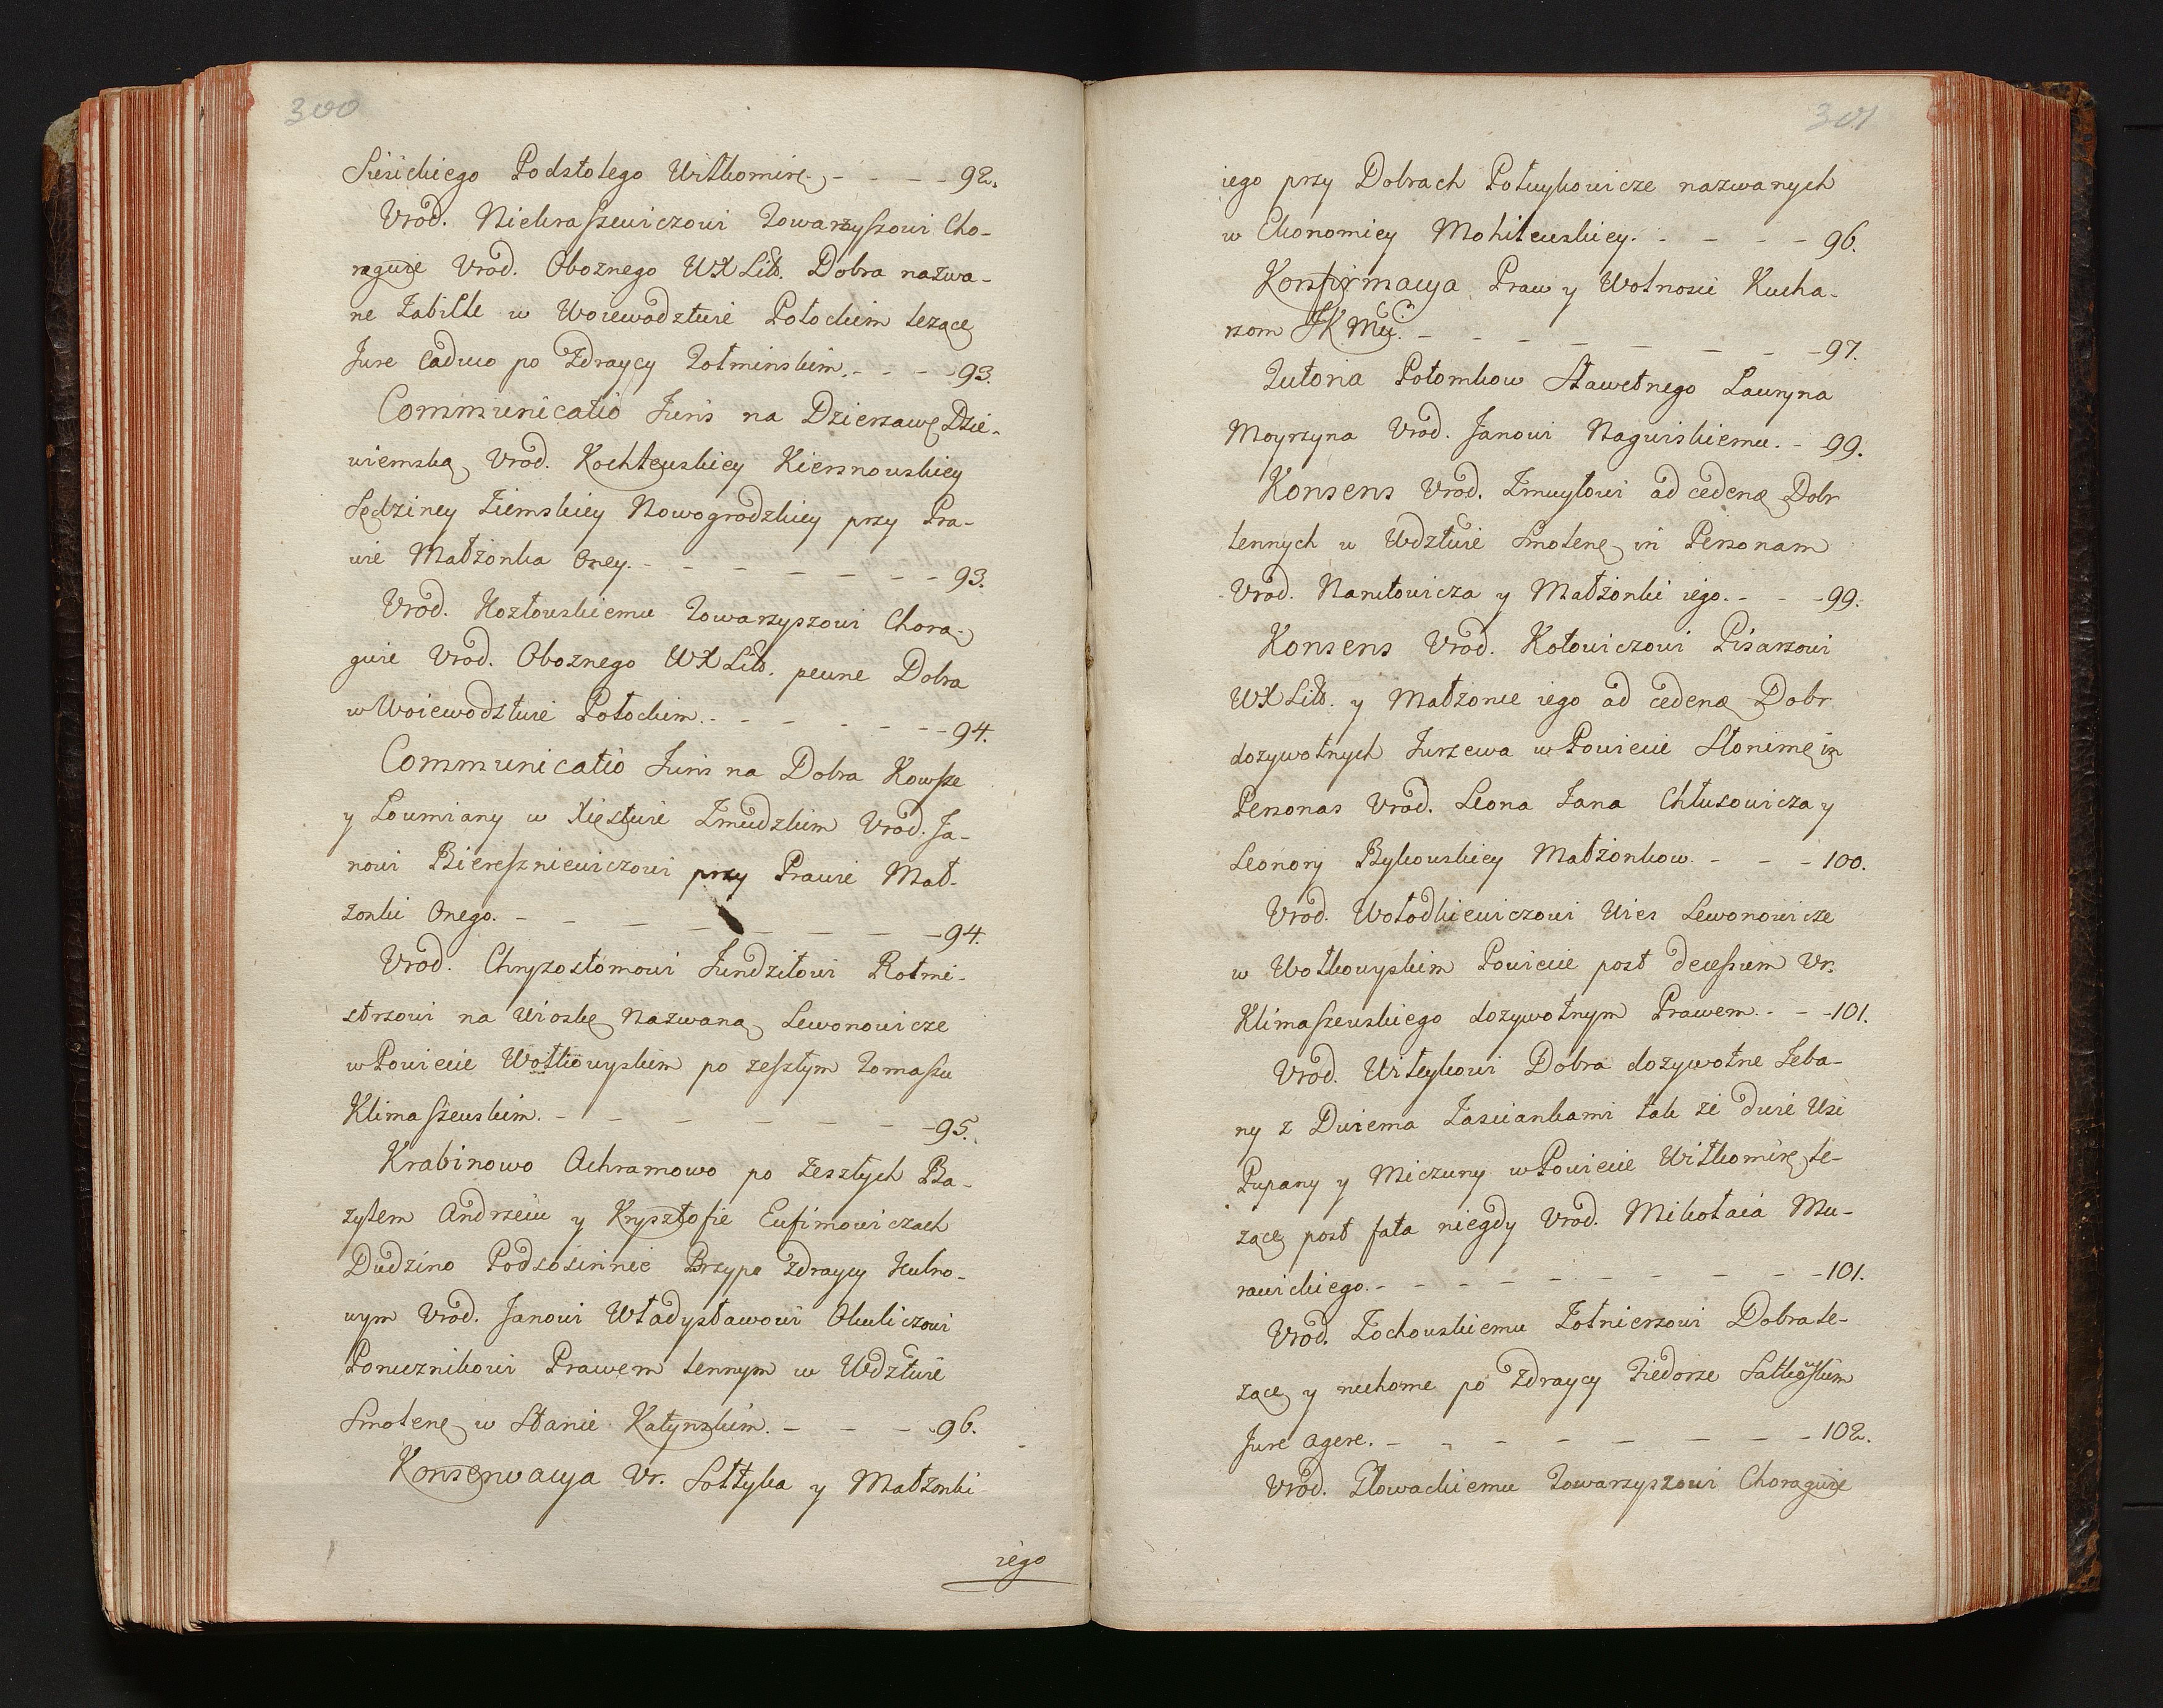 300
Siesickiego Podstolego Wiłkomirę - - - - 92.
Vrod. Niekraszewiczowi Towarzyszowi Cho-
rągwie Vrod. Oboznego WXLitt. Dobra nazwa-
ne Zabilte w Woiewodztwie Połockim lezące
Jure Caduco po Zdraycy Zołminskim. - - - 93.
Communicatio Juris na Dzierzawę Dzie-
wiemską Vrod. Kochlewskiey Kiersnowskiey
Sędziney Ziemskiey Nowogrodzkiey przy Pra-
wie Małżonka Oney. - - - - - - - 93.
Vrod. Kozłowskiemu Towarzyszowi Chorą-
gwie Vrod. Oboznego WXLitt. pewne Dobra
w Woiewodztwie Połockim. - - - - - - 94.
Communicatio Juris na Dobra Kowsze
y Łowmiany w Xięstwie Zmudzkim Vrod. Ja-
nowi Biereszniewiczowi przy Prawie Mał-
zonki Onego. - - - - - - - - 94.
Vrod. Chryzostomowi Jundziłowi Rotmi-
strzowi na Wioskę Nazwaną Lewonowicze
w Powiecie Wołkowyskim po zeszłym Tomaszu
Klimaszewskim. - - - - - - - 95.
Krabinowo Achramowo po Zeszłych Ba-
zylem Andrzeiu y Krysztofie Eufimowiczach
Dudzino Podsosinnie Brzype Zdraycy Kulno-
wym Vrod. Janowi Władysławowi Okuliczowi
Porucznikowi Prawem lennym w Wdztwie
Smolenę w Stanie Katynskim. - - - 96.
Konserwacya Vr. Sołtyka y Małżonki
iego
301
iego przy Dobrach Połuykowicze nazwanych
w Ekonomiey Mohilewskiey. - - - - 96.
Konfirmacya Praw y Wolnosci Kucha-
rzom JKMci. - - - - - - - - 97.
Tutoria Potomkow Sławetnego Ławryna
Moyrzyna Vrod. Janowi Naguiskiemu. - 99.
Konsens Vrod. Zmuyłowi ad cedeną Dobr
lennych w Wdztwie Smolenę in Personam
Vrod. Narułowicza y Małżonki iego. - - - 99.
Konsens Vrod. Kotowiczowi Pisarzowi
WXLitt. y Małżonce iego ad cedeną Dobr
dozywotnych Jurzewa w Powiecie Słonimę in
Personas Vrod. Leona Jana Chłusowicza y
Leonory Bykowskiey Małżonkow. - - - 100.
Vrod. Wołodkiewiczowi Wies Lewonowicze
w Wołkowyskim Powiecie post decessum Vr.
Klimaszewskiego dozywotnym Prawem. - - 101.
Vrod. Witeykowi Dobra dozywotne Leba-
ny z Dwiema Zasciankami tak ze dwie Wsi
Pupany y Miczuny w Powiecie Wiłkomirę le-
zące post fata niegdy Vrod. Mikołaia Mu-
rawickiego. - - - - - - - - - 101.
Vrod. Zochowskiemu Zołnierzowi Dobra le-
zące y ruchome po Zdraycy Fiedorze Satkowskim
Jure agere. - - - - - - - - 102.
Vrod. Głowackiemu Towarzyszowi Chorągwie